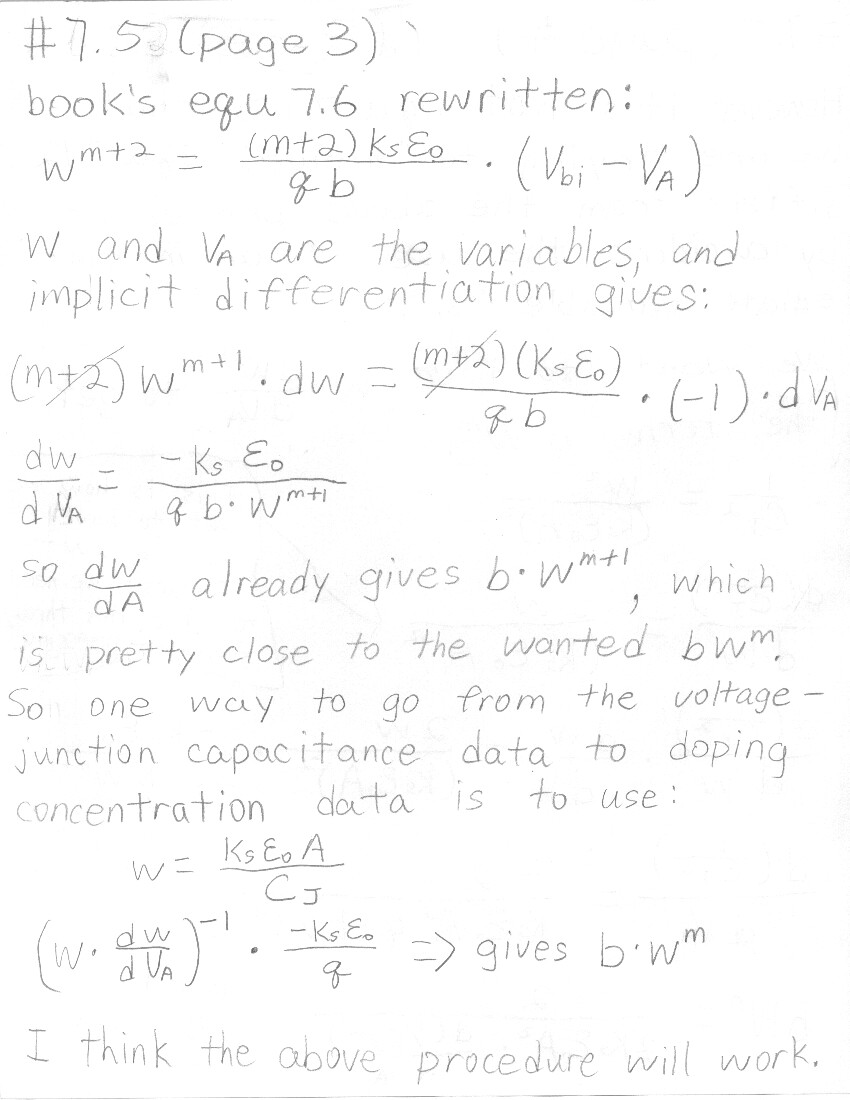 #7.5 (page 3)
book's equ 7.6 rewritten:
W^{m+2} = \frac{(m+2) K_S ε_0}{q b} · (V_{bi} - V_A)
W and V_A are the variables, and
implicit differentiation gives:
(m+2) W^{m+1} · dW = \frac{(m+2)(K_S ε_0)}{q b} · (-1) · dV_A
\frac{dW}{dV_A} = \frac{-K_S ε_0}{q b · W^{m+1}}
so \frac{dW}{dA} already gives b·W^{m+1}, which
is pretty close to the wanted bW^m.
So one way to go from the voltage-
junction capacitance data to doping
concentration data is to use:
W = \frac{K_S ε_0 A}{C_J}
(W · \frac{dW}{dV_A})^{-1} · \frac{-K_S ε_0}{q} => gives b·W^m
I think the above procedure will work.